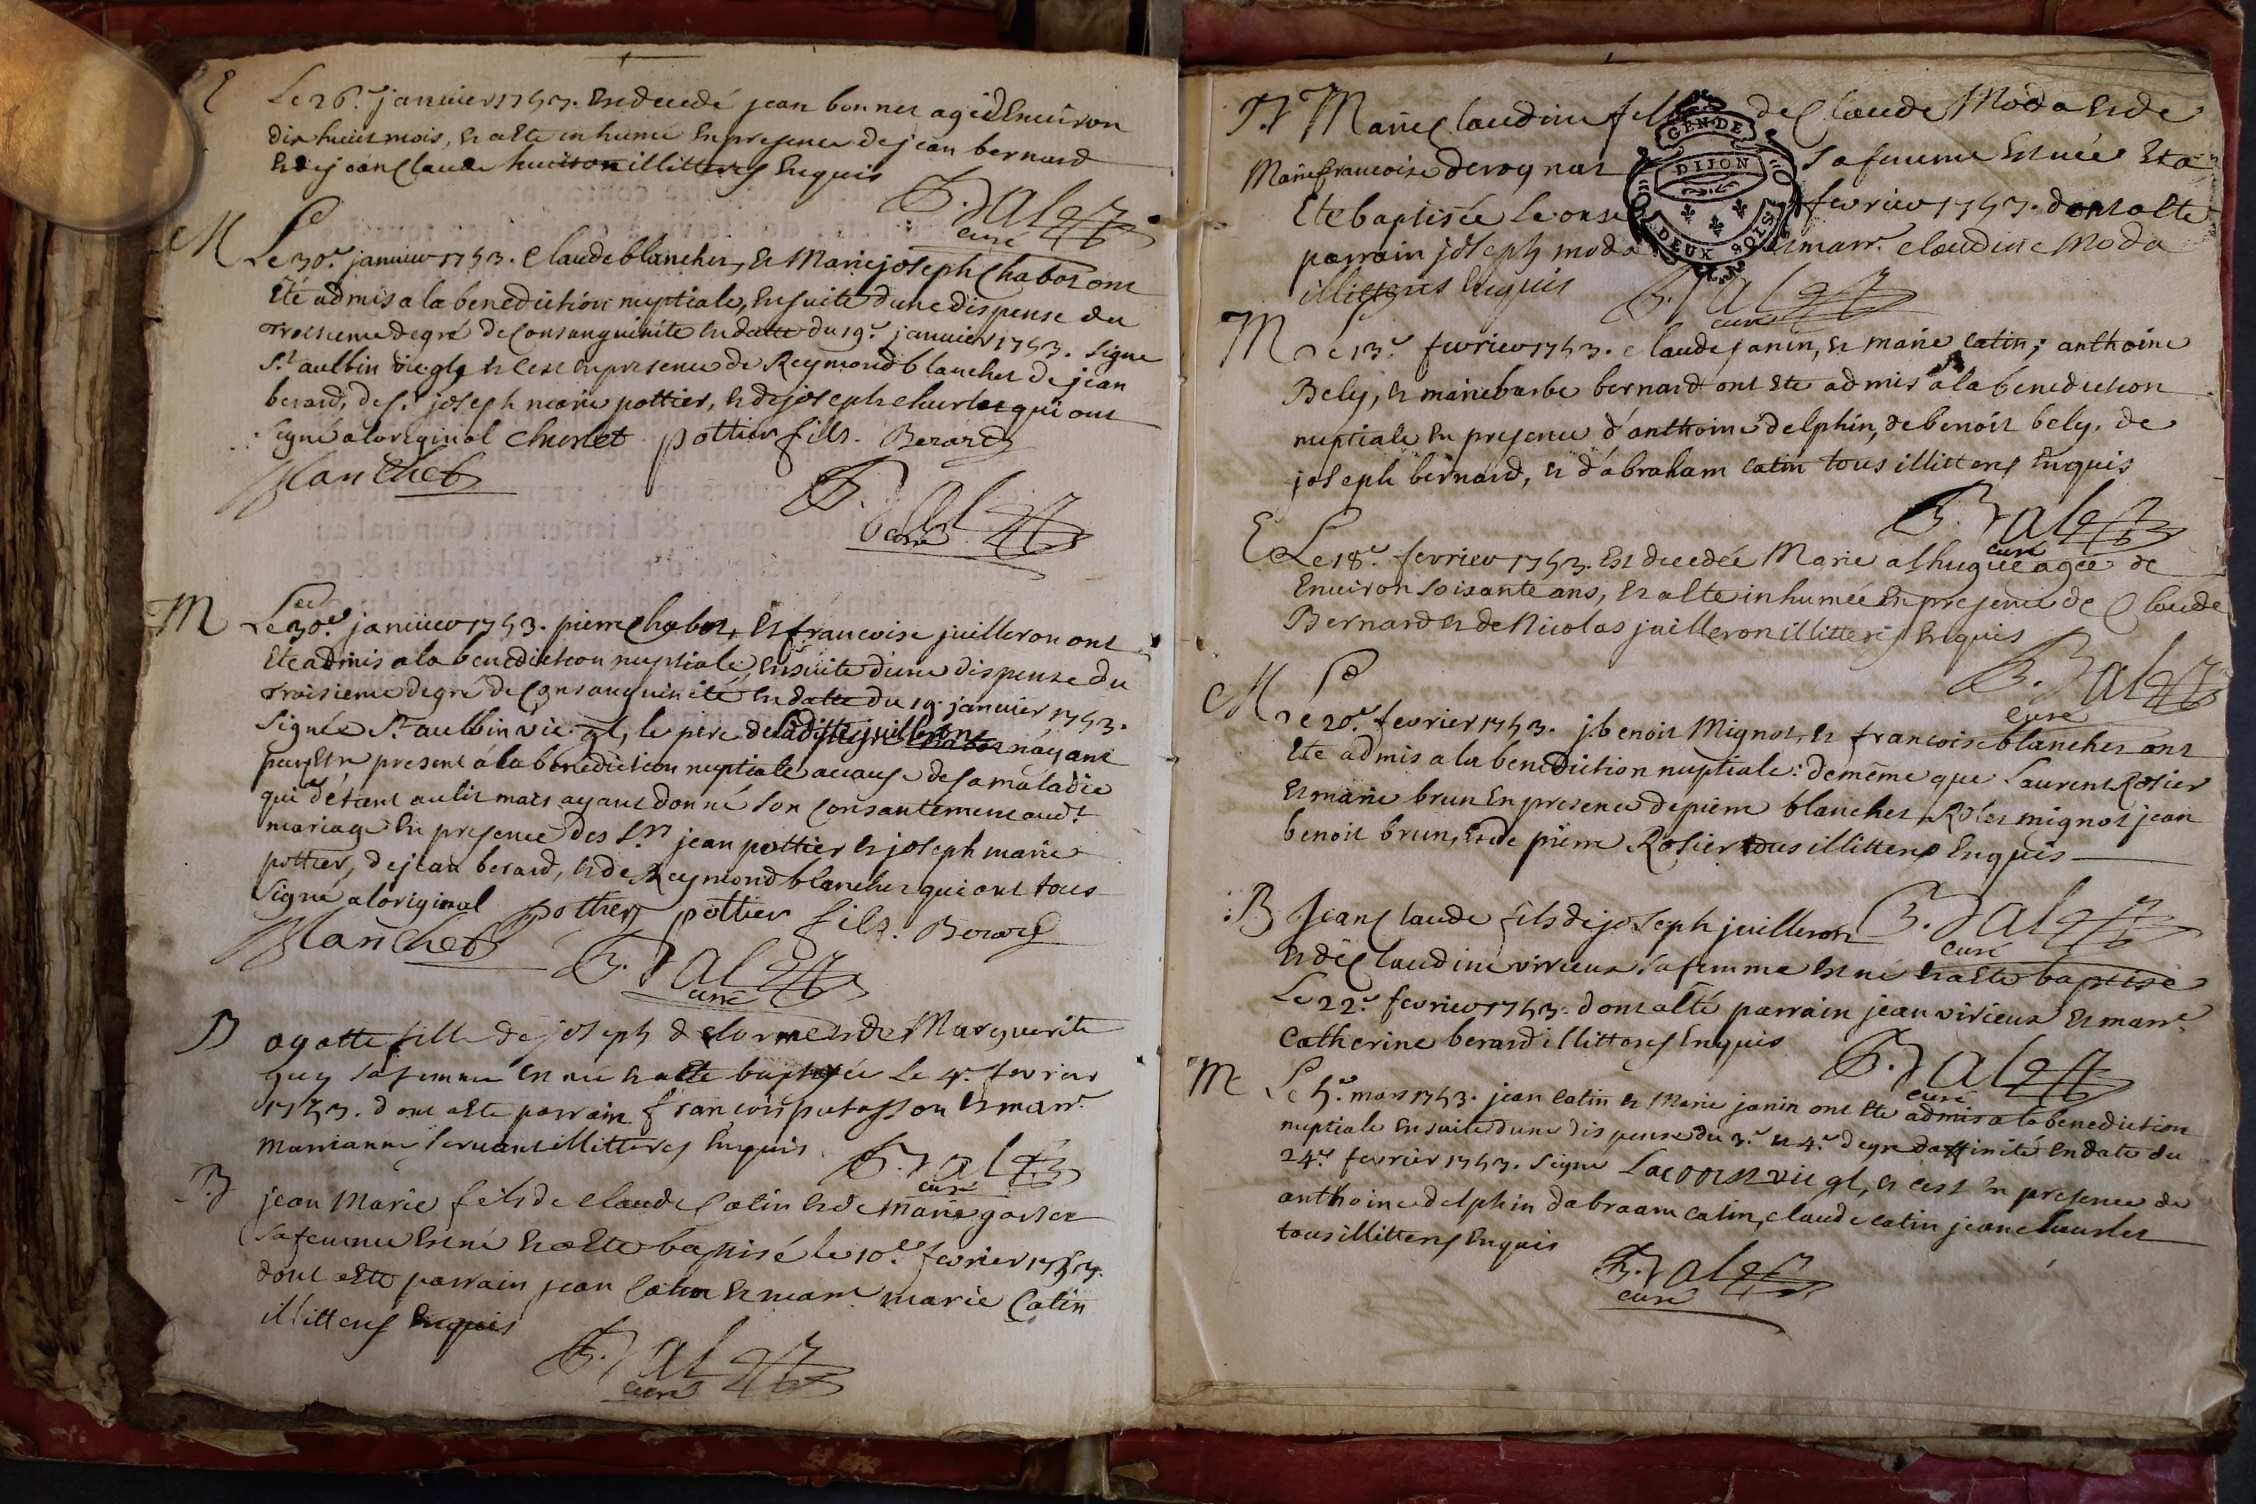 E Le 26.e janvier 1753. Est decedé jean bonnet agé d'Environ
dix huict mois, Et a Ete inhumé En presence de jean bernard
Et de jean Claude huitton illitterés Enquis
curé
M Le 30.e janvier 1753. Claude blanchet, Et Marie joseph Chabot ont
Eté admis a la benediction nuptiale, Ensuite dune dispense du
troisieme degré de Consanguinité En datte du 19.e janvier 1753. Signé
St. aulbin vic gl, Et Cest En presence de Reymond blanchet de jean
berard, de s.r joseph marie pottier, Et de joseph churlet qui ont
signé a loriginal Churlet pottier fils. Berard
Blanchet
curé
M Le 30.e janvier 1753. pierre Chabot, Et francoise juilleron ont
Ete admis a la benediction nuptiale, Ensuite dune dispense du
troisieme degré de Consanguinité En datte du 19. janvier 1753.
Signée St. aulbin vic. gl, le pere de laditte juilleron n'ayant
peu Etre present á la benediction nuptiale a cause de sa maladie
qui le detient au lit mais ayant donné son Consantement audt.
mariage En presence des Srs. jean pottier Et joseph marie
pottier, de jean berard, Et de Reymond blanchet qui ont tous
Signé a loriginal pottier pottier fils. Berard
Blanchet
curé
B agatte fille de joseph delorme Et de Marguerite
guy sa femme Est née Et a Ete baptisée Le 4.e fevrier
1753. dont a Ete parrain francois putasson Et marr.
marianne servant illitterés Enquis
curé
B jean Marie fils de claude Catin Et de marie
sa femme Est né Et a Ete baptisé le 10.e fevrier 1753.
dont a Ete parrain jean Catin Et marr. marie Catin
illitterés Enquis
curé
B Marie Claudine fille de Claude Moda Et de
Marie francoise derognat sa femme Est née Et a
Ete baptisée Le onse fevrier 1753. dont a Ete
parrain joseph moda Et marr. claudine Moda
illitterés Enquis
GEN. DE
DIJON
DEUX SOLS
curé
M Le 13.e fevrier 1753. claude janin, Et marie catin; anthoine
Bely, Et marie barbe bernard ont Ete admis a la benediction
nuptiale En presence d'anthoine delphin, de benoit bely, de
joseph bernard, Et d'abraham catin tous illitterés Enquis
curé
E Le 18.e fevrier 1753. Est decedée Marie alhugue agée de
Environ soixante ans, Et a Ete inhumée En presence de Claude
Bernard Et de Nicolas juilleron illitterés Enquis
curé
M Le 20.e fevrier 1753. j. benoit Mignot, Et francoise blanchet ont
Ete admis a la benediction nuptiale: de même que Laurent Rosier
Et marie brun En presence de pierre blanchet, mignot jean
benoit brun, Et de pierre Rosier tous illitterés Enquis
curé
B Jean Claude fils de joseph juilleron
Et de Claudine virieux sa femme Est né Et a Ete baptisé
Le 22.e fevrier 1753. dont a Eté parrain jean virieux Et marr.
Catherine berard illitterés Enquis
curé
M Le 5.e mars 1753. jean Catin Et Marie janin ont Ete admis a la benediction
nuptiale Ensuite dune dispense du 3.e Et 4.e degré daffinité En date du
24.e fevrier 1753. Signé Lacour vic gl, Et cest En presence de
anthoine delphin dabraam catin, claude catin jean churlet
tous illitterés Enquis
curé